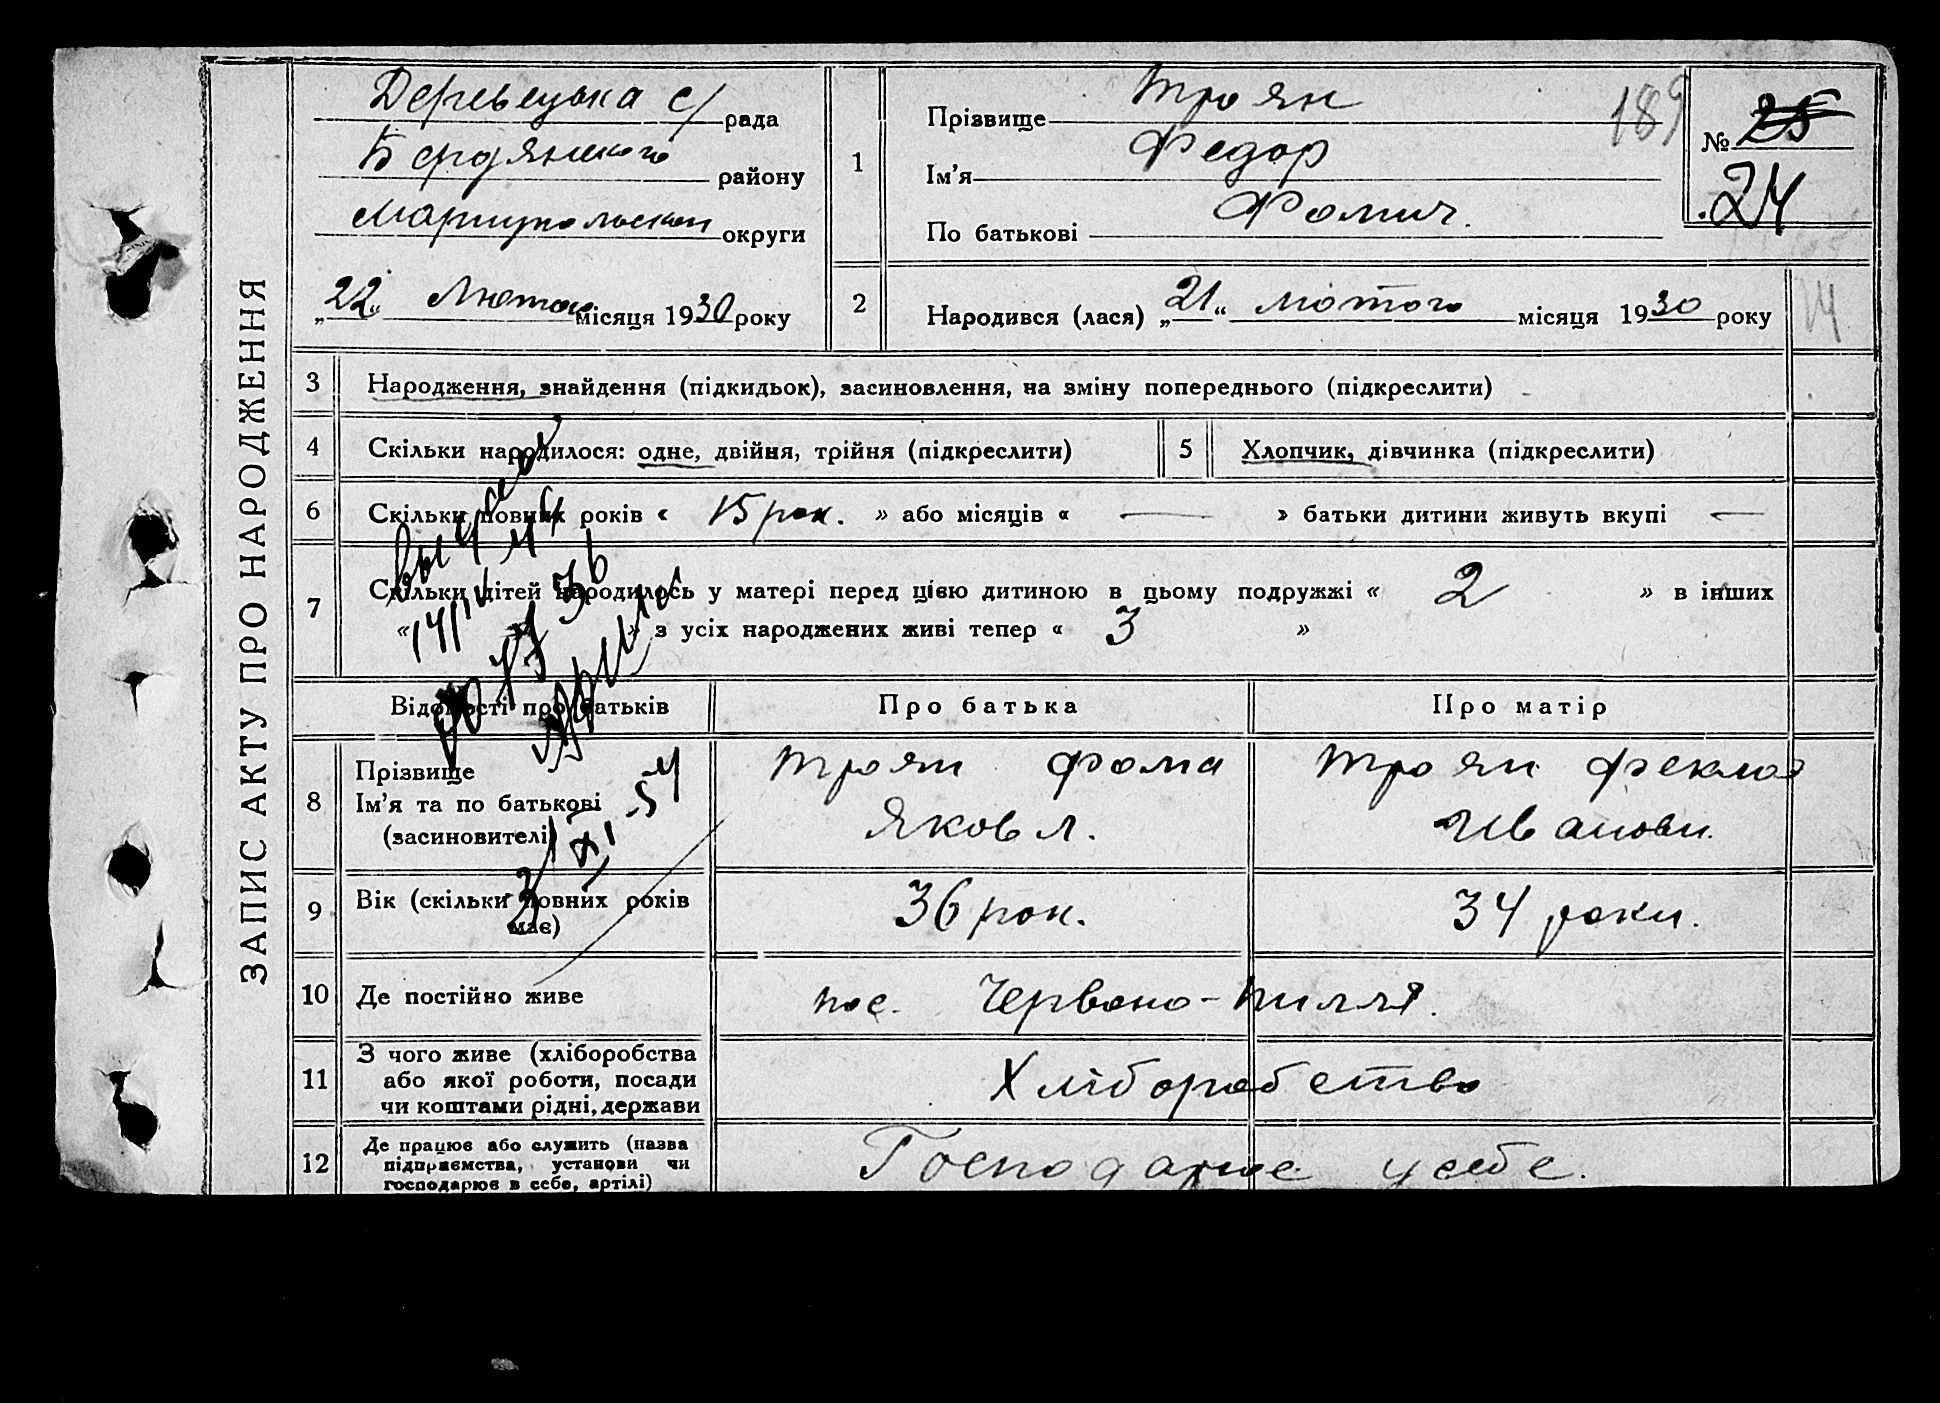 ЗАПИС АКТУ ПРО НАРОДЖЕННЯ
с/рада
Бердянського району
Маріупольськой округи
„22“ Лютого місяця 1930 року
1
Прізвище Троян
Ім'я Федор
По батькові Фомич.
189
№ 25
24
2
Народився (лася) „21“ лютого місяця 1930 року
3 Народження, знайдення (підкидьок), засиновлення, на зміну попереднього (підкреслити)
4 Скільки народилося: одне, двійня, трійня (підкреслити)
5 Хлопчик, дівчинка (підкреслити)
6 Скільки повних років « 15 рок. » або місяців « — » батьки дитини живуть вкупі —
7 Скільки дітей народилось у матері перед цією дитиною в цьому подружжі « 2 » в інших
« » з усіх народжених живі тепер « 3 »
Відомості про батьків
Про батька
Про матір
8
Прізвище
Ім'я та по батькові
(засиновителі)
Троян Фома
Яковл.
Троян Фекла
Иванови.
9 Вік (скільки повних років
має)
36 рок.
34 роки.
10 Де постійно живе
пос. Червоно-Пилля.
11
З чого живе (хліборобства
або якої роботи, посади
чи коштами рідні, держави
Хліборобство
12
Де працює або служить (назва
підприємства, установи чи
господарює в себе, артілі)
Господарює у себе.